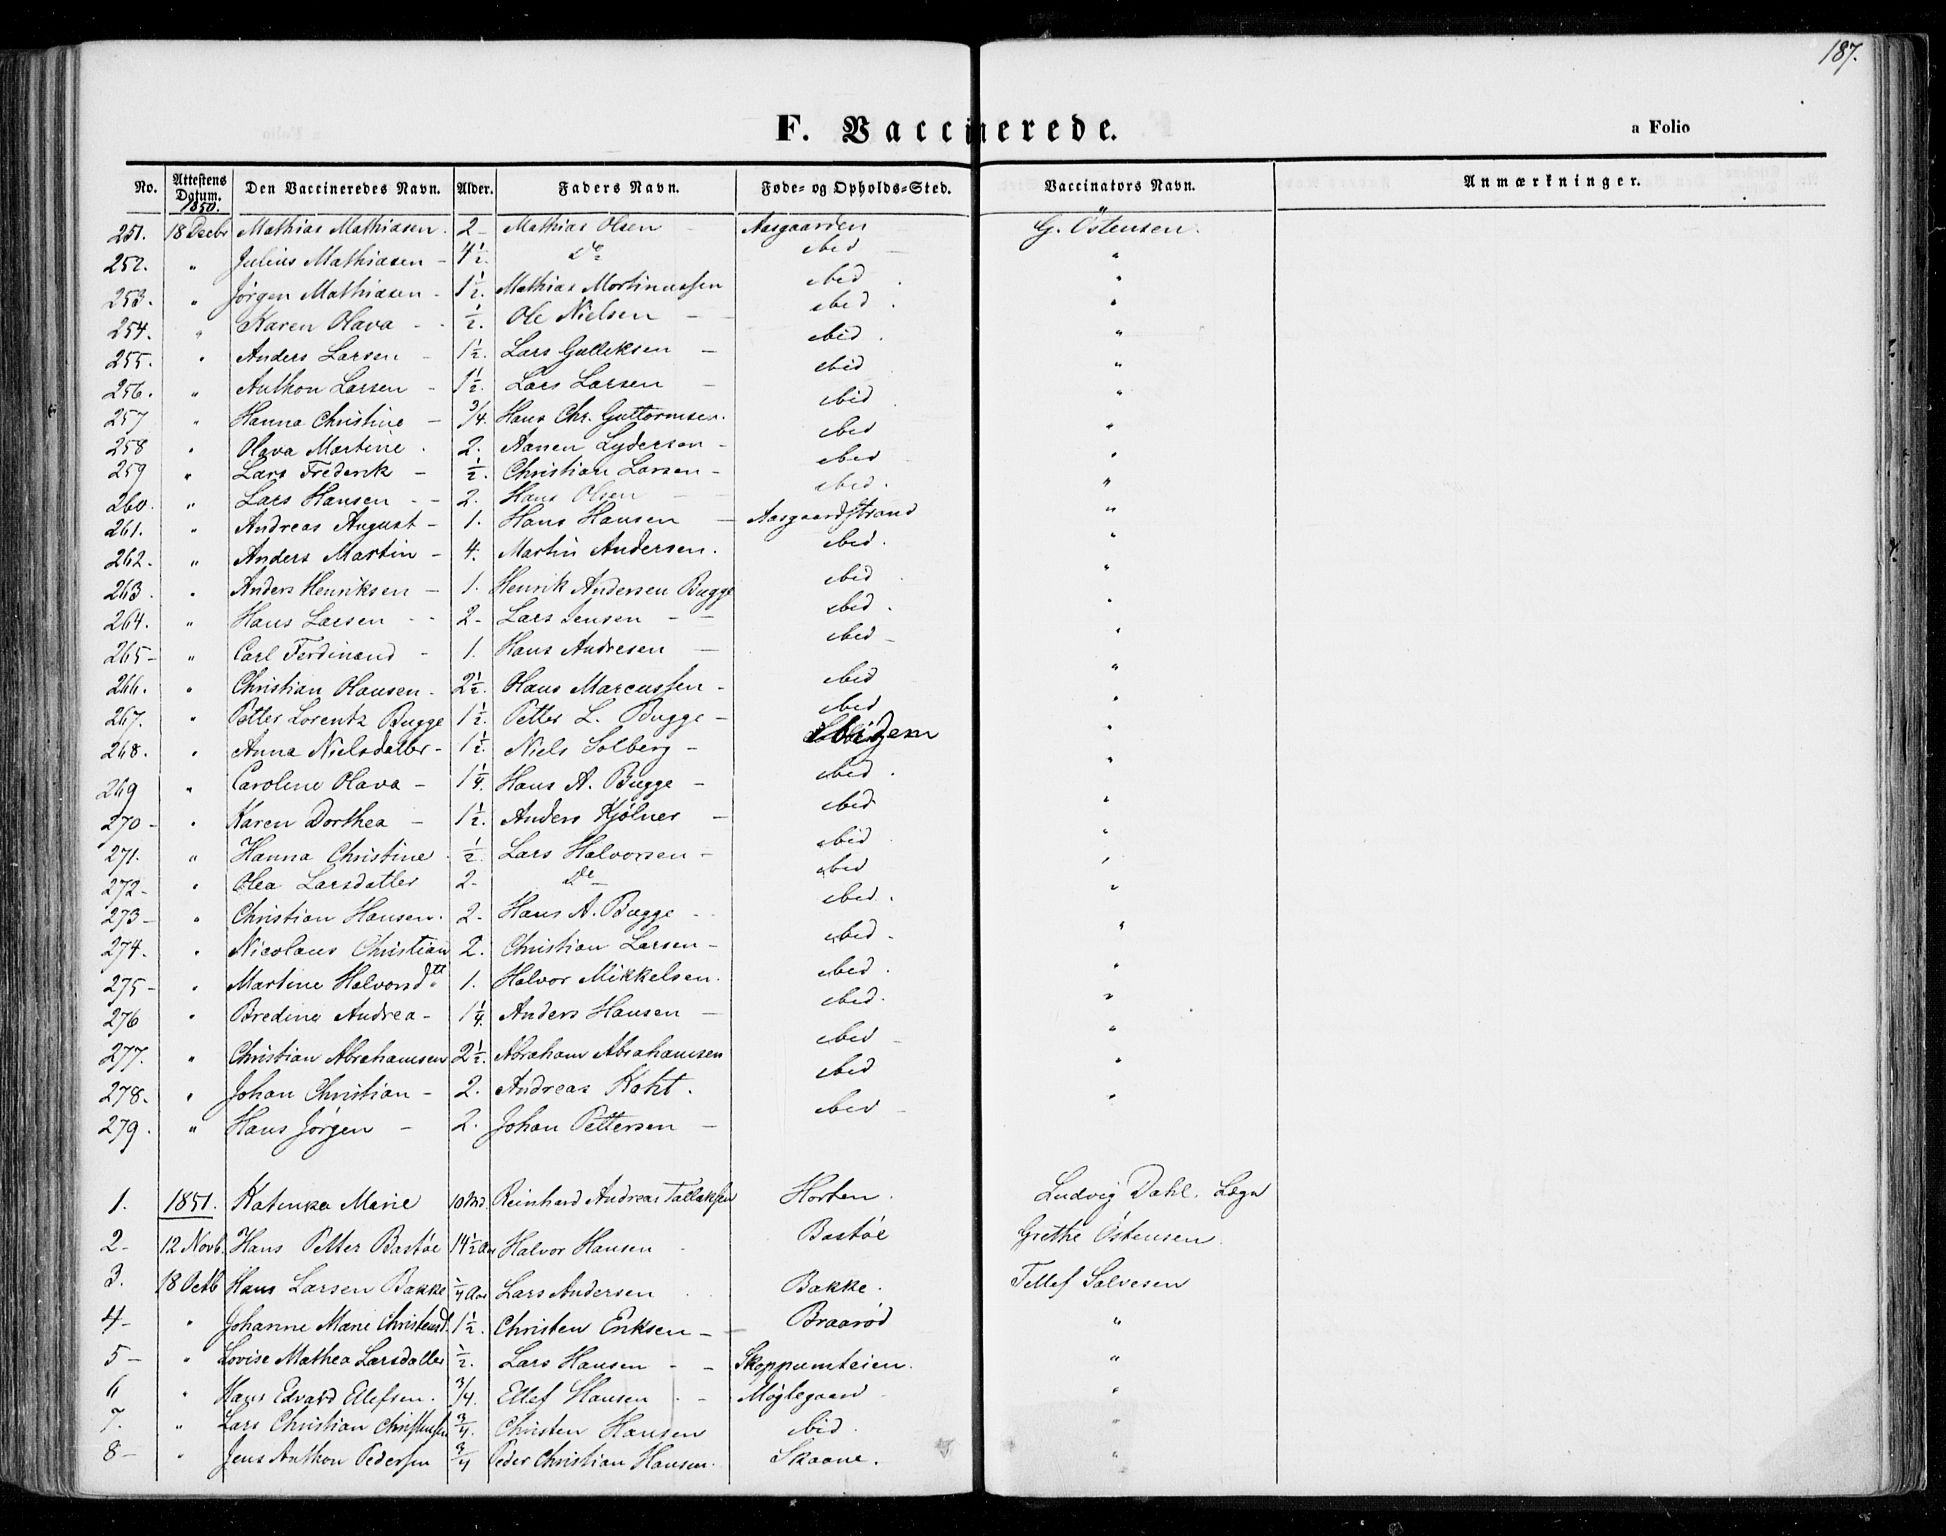 187.
F. Vaccinerede.
a Folio
No. Attestens Datum. Den Vaccineredes Navn. Alder. Faders Navn. Føde- og Opholds-Sted. Vaccinators Navn. Anmærkninger.
1850.
251. 18 Decbr Mathias Mathiasen. 2 - Mathias Olsen - Aasgaarden G. Östensen.
252. " Julius Mathiasen - 4 1/2. Do ibid - "
253. " Jørgen Mathiasen - 1 1/2. Mathias Mortinussen ibid . "
254. " Karen Olava - - 1/2. Ole Nielsen - ibid . "
255. " Anders Larsen - 1 1/2. Lars Gulliksen - ibid . "
256. " Anthon Larsen - 1 1/2. Lars Larsen - ibid "
257 " Hanna Christine - 3/4. Hans Chr. Guttormsen. ibid . "
258 " Olava Martine . 2. Aanen Lydersen - ibid "
259 " Lars Frederik - 1/2. Christian Larsen - ibid "
260. " Lars Hansen - - 2. Hans Olsen - ibid. "
261. " Andreas August - 1. Hans Hansen - Aasgaardstrand "
262. " Anders Martin - 4. Martin Andersen. ibid. "
263. " Anders Henriksen - 1. Henrik Andersen Bugge ibid . "
264. " Hans Larsen - - 2 - Lars Jensen - - ibid . "
265 - " Carl Ferdinand - 1. Hans Andresen - ibid - "
266. " Christian Hansen - 2 1/2. Hans Marcussen - ibid "
267. " Petter Lorentz Bugge 1 1/2. Petter L. Bugge - ibid "
268. " Anna Nielsdatter - 1 1/2. Niels Solberg - Ibidem "
269 " Caroline Olava - 1 1/4. Hans A. Bugge - ibid . "
270 - " Karen Dorthea - 1 1/2. Anders Kjølner - ibid "
271. " Hanna Christine . 1/2. Lars Halvorsen - ibid "
272 - " Olea Larsdatter 2 - Do - ibid "
273 - " Christian Hansen. 2 - Hans A. Bugge - ibid . "
274. " Nicolaus Christian 2. Christian Larsen - ibid - "
275 - " Martine Halvorsdtr 1. Halvor Mikkelsen. ibid . "
276 " Bredine Andrea - 1 1/4. Anders Hansen - ibid. "
277. " Christian Abrahamsen 2 1/2. Abraham Abrahamsen ibid - "
278. " Johan Christian - 2. Andreas Koht. ibid "
279. " Hans Jørgen - 2. Johan Pettersen - ibid - "
1. 1851. Katinka Marie 10 Md. Reinhard Andreas Tallaksen Horten. Ludvig Dahl. Læge
2 - 12 Novb. Hans Petter Bastøe 14 1/2 Aar Halvor Hansen - Bastøe Grethe Östensen.
3. 18 Octb Hans Larsen Bakke 1/4 Aar Lars Andersen . Bakke. Tellef Salvesen
4 - " Johanne Marie Christensd. 1 1/2. Christen Eriksen - Braarød "
5 - " Lovise Mathea Larsdatter 1/2. Lars Hansen - - Skoppumteien. "
6 " Hans Edvard Ellefsen. 3/4. Ellef Hansen . - Møglegaard "
7. " Lars Christian Christensen 3/4. Christen Hansen ibid. "
8 - " Jens Anthon Pedersen 3/4 Peder Christian Hansen. Skaane. "